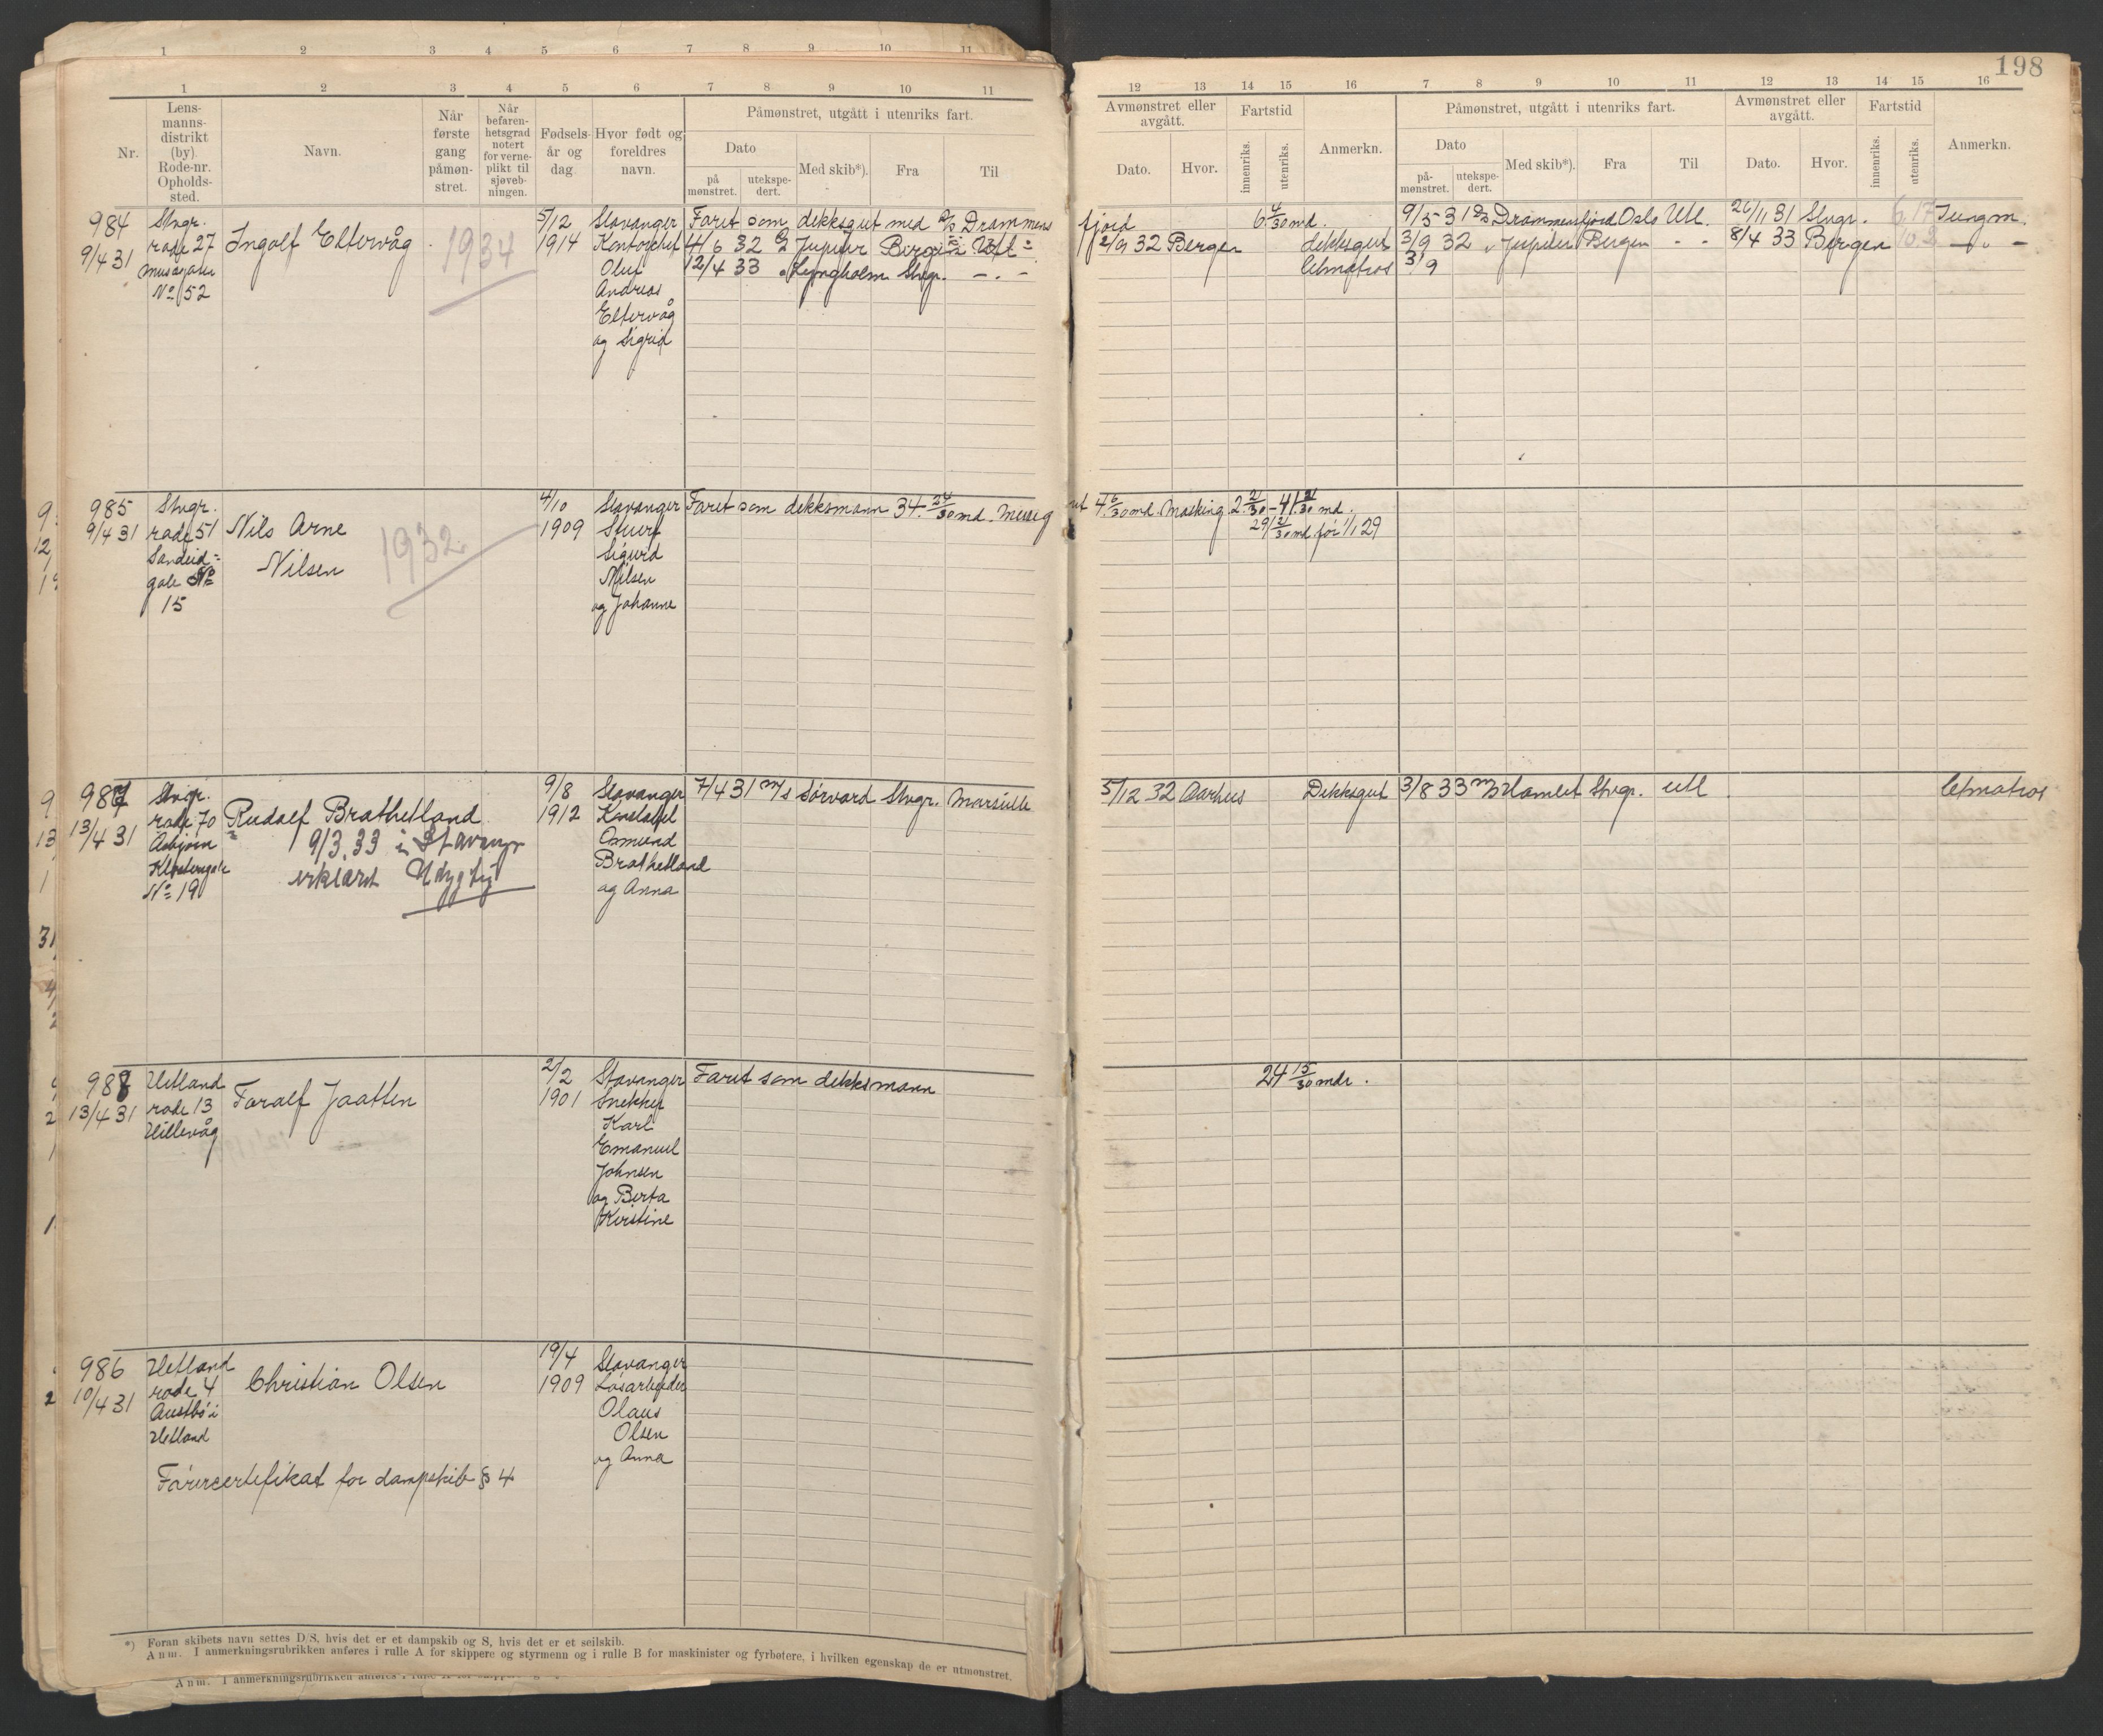 198
1 2 3 4 5 6 7 8 9 10 11
1 2 3 4 5 6 7 8 9 10 11
12 13 14 15 16 7 8 9 10 11 12 13 14 15 16
Nr.
Lens-
manns-
distrikt
(by).
Rode-nr.
Opholds-
sted.
Navn.
Når
første
gang
påmøn-
stret.
Når
befaren-
hetsgrad
notert
for verne-
plikt til
sjøveb-
ningen.
Fødsels-
år og
dag
Hvor født og
foreldres
navn.
Påmønstret, utgått i utenriks fart.
Dato
på
mønstret.
utekspe-
dert.
Med skib*).
Fra
Til
Avmønstret eller
avgått.
Dato.
Hvor.
Fartstid
innenriks.
utenriks.
Anmerkn.
Påmønstret, utgått i utenriks fart.
Dato
på-
mønstret.
utekspe-
dert.
Med skib*).
Fra
Til
Avmønstret eller
avgått.
Dato.
Hvor.
Fartstid
innenriks.
utenriks.
Anmerkn.
984
9/4 31
Stvgr.
rode 27
Musegaten
No 52
Ingolf Eltervåg
1934
5/12
1914
Stavanger
Kontorchef
Oluf
Andreas
Eltervåg
og Sigrid
Faret som dekksgut med D/S Drammens
fjord 6 4/30 md.
4/6 32 Jupiter Bergen Utl
2/9 32 Bergen dekksgut
12/4 33 " Lyngholm Stvgr. - . -
Letmatros
9/5 31 D/S Drammensfjord Oslo Utl. 26/11 31 Stvgr. 6.17 Jungm.
3/9 32 " Jupiter Bergen - - 8/4 33 Bergen - " -
3/9
985
9/4 31
Stvgr.
rode 51
Sandeid-
gate No
15
Nils Arne
Nilsen
1932
4/10
1909
Stavanger
Stuert
Sigurd
Nilsen
og Johanne
Faret som dekksmann 34. 24/30 md.
4 6/30 md. Masking 2 21/30 - 41 21/30 md.
29 21/30 md før 1/1 29
987
13/4 31
Stvgr.
rode 70
Asbjørn
Klostergate
No 19
Rudolf Brathetland
9/3.33 i Stavanger
erklært Udygtig
9/8
1912
Stavanger
Konstabel
Osmund
Brathetland
og Anna
7/4 31 M/S Sørvard Stvgr. Marseille
5/12 32 Aarhus Dekksgut 3/8 33 M/S Hamlet Stvgr. utl Letmatros
988
13/4 31
Hetland
rode 13
Hillevåg
Toralf Jaatten
2/2
1901
Stavanger
Snekker
Karl
Emanuel
Johnsen
og Berta
Kirstine
Faret som dekksmann
24 15/30 mdr.
986
10/4 31
Hetland
rode 4
Austbø i
Hetland
Christian Olsen
Førercertifikat for dampskib § 4
19/4
1909
Stavanger
Løsarbeider
Olaus
Olsen
og Anna
*) Foran skibets navn settes D/S, hvis det er et dampskib og S, hvis det er et seilskib.
Anm. I anmerkningsrubrikken anføres i rulle A for skippere og styrmenn og i rulle B for maskinister og fyrbøtere, i hvilken egenskap de er utmønstret.